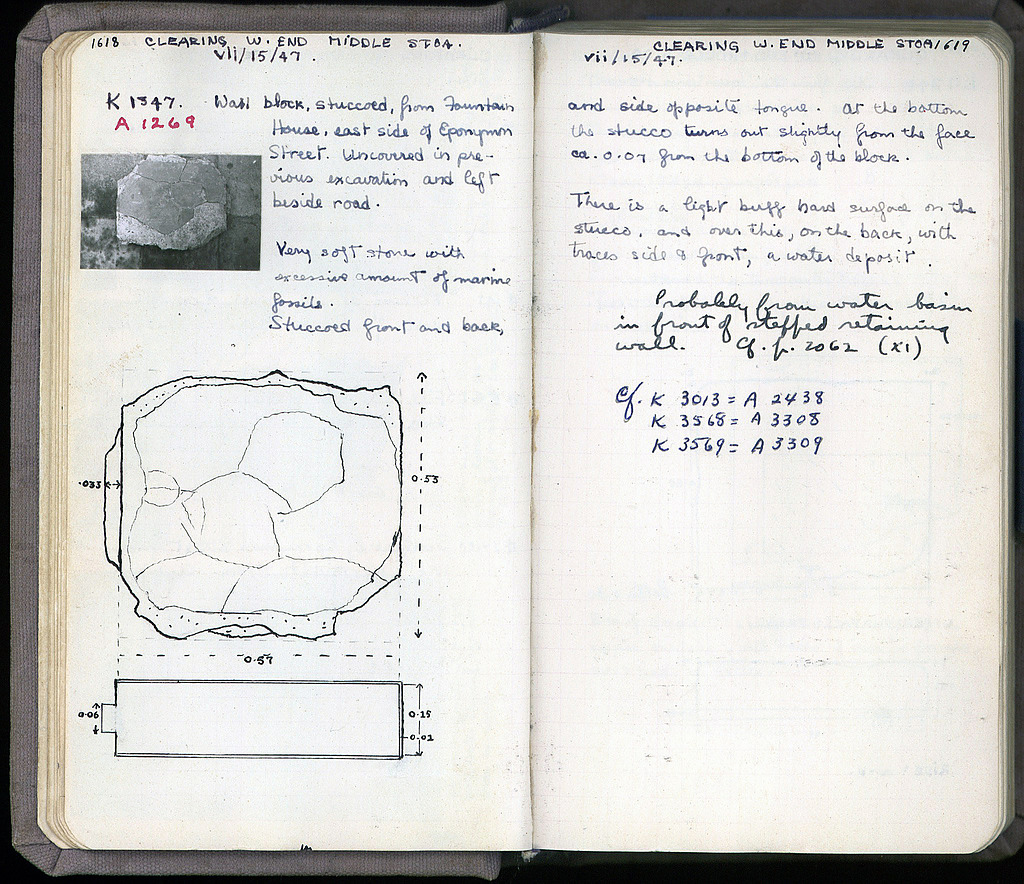 1618 CLEARING W. END MIDDLE STOA.
vii/15/47.
K 1347. Wall block, stuccoed, from Fountain
A 1269
House, east side of Eponymon
Street. Uncovered in pre-
vious excavation and left
beside road.
Very soft stone with
excessive amount of marine
fossils.
Stuccoed front and back,
.033
0.53
0.57
0.06
0.15
0.01
CLEARING W. END MIDDLE STOA 1619
vii/15/47.
and side opposite tongue. At the bottom
the stucco turns out slightly from the face
ca. 0.07 from the bottom of the block.
There is a light buff hard surface on the
stucco, and over this, on the back, with
traces side & front, a water deposit.
Probably from water basin
in front of stepped retaining
wall. Cf. p. 2062 (XI)
Cf. K 3013 = A 2438
K 3568 = A 3308
K 3569 = A 3309